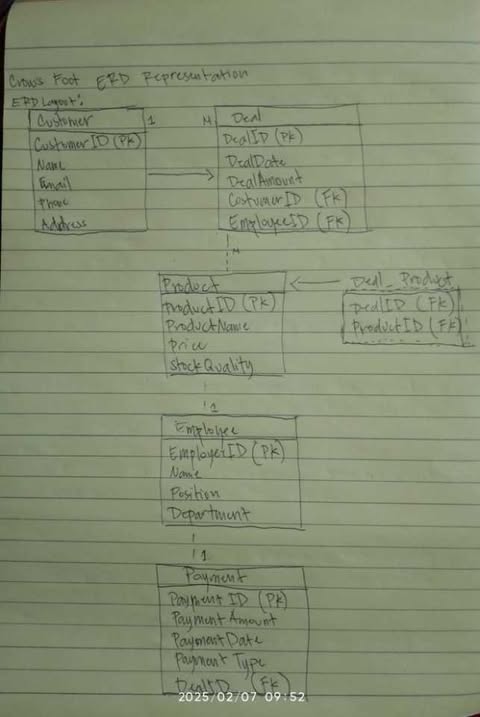 Crow's Foot ERD Representation
ERD Layout:
Customer
1
CustomerID (PK)
Name
Email
Phone
Address
M
Deal
DealID (PK)
DealDate
DealAmount
CostumerID (FK)
EmployeeID (FK)
M
Product
ProductID (PK)
ProductName
Price
StockQuality
Deal_Product
DealID (FK)
ProductID (FK)
1
Employee
EmployeeID (PK)
Name
Position
Department
1
Payment
PaymentID (PK)
PaymentAmount
PaymentDate
Payment Type
DealID (FK)
2025/02/07 09:52